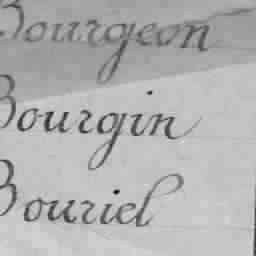 Bourgeon
Bourgin
Bouriel